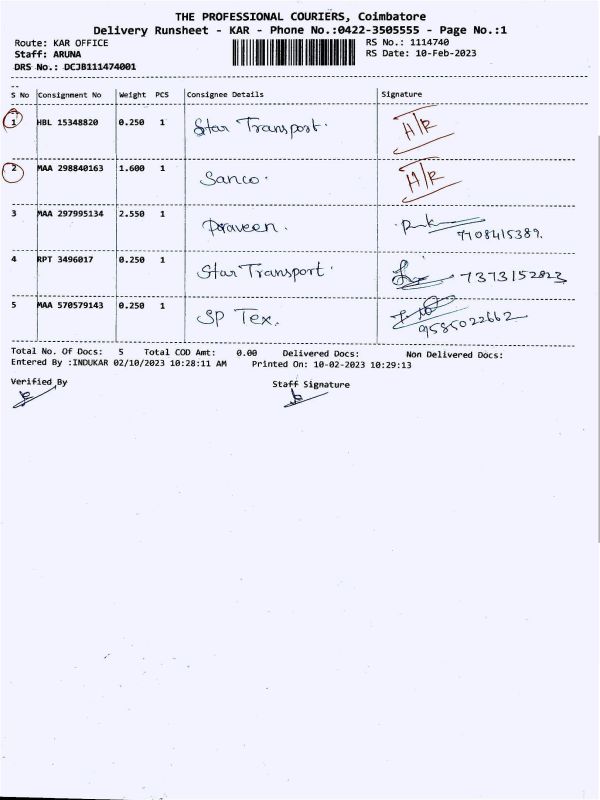 THE PROFESSIONAL COURIERS, Coimbatore
Delivery Runsheet - KAR - Phone No.:0422-3505555 - Page No.:1
Route: KAR OFFICE RS No.: 1114740
Staff: ARUNA RS Date: 10-Feb-2023
DRS No.: DCJB111474001
S No Consignment No Weight PCS Consignee Details Signature
1 HBL 15348820 0.250 1 Star Transport. H/R
2 MAA 298840163 1.600 1 Sanco. H/R
3 MAA 297995134 2.550 1 Praveen. 7708415389.
4 RPT 3496017 0.250 1 Star Transport. 7373152823
5 MAA 570579143 0.250 1 SP Tex. 9585022662
Total No. Of Docs: 5 Total COD Amt: 0.00 Delivered Docs: Non Delivered Docs:
Entered By :INDUKAR 02/10/2023 10:28:11 AM Printed On: 10-02-2023 10:29:13
Verified By Staff Signature